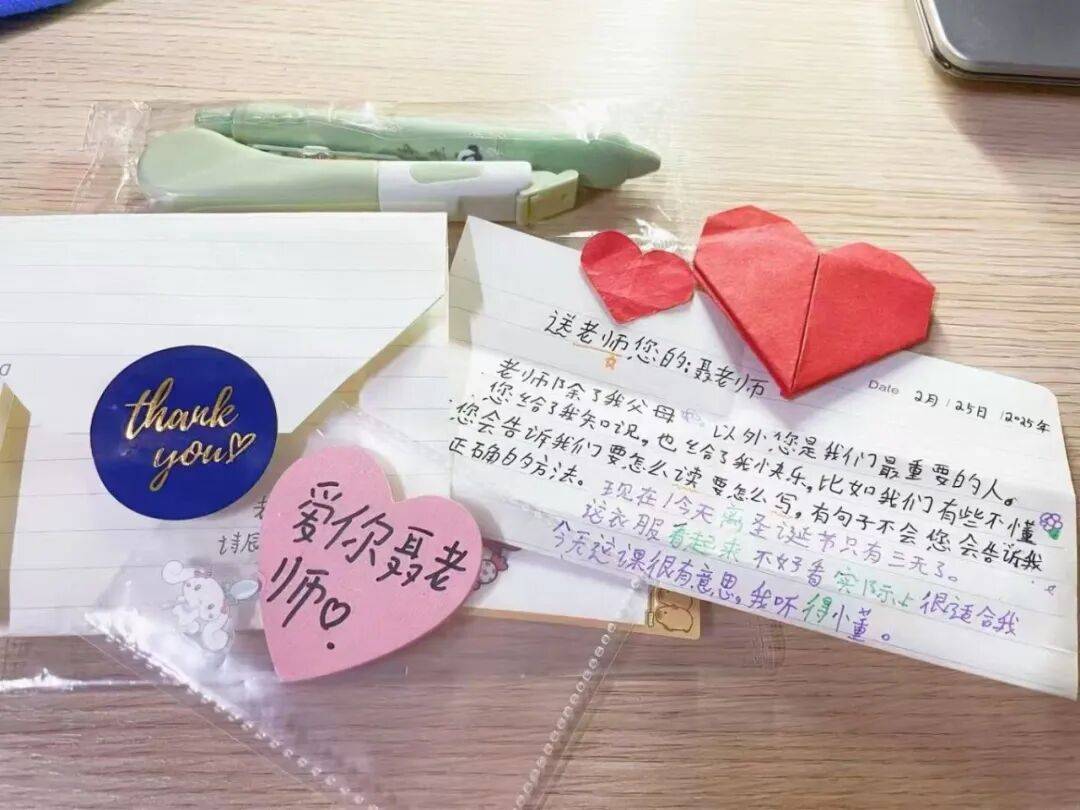 thank
you
爱你聂老
师
送老师您的:聂老师
Date 2月/25日/2025年
老师除了我父母 以外您是我们最重要的人。
您给了我知识,也给了我快乐,比如我们有些不懂
您会告诉我们要怎么读要怎么写,有句子不会您会告诉我
正确的方法。
现在1今天离圣诞节只有三天了。
这衣服看起来不好看实际上很适合我
今天这课很有意思,我听得小懂。
诗辰